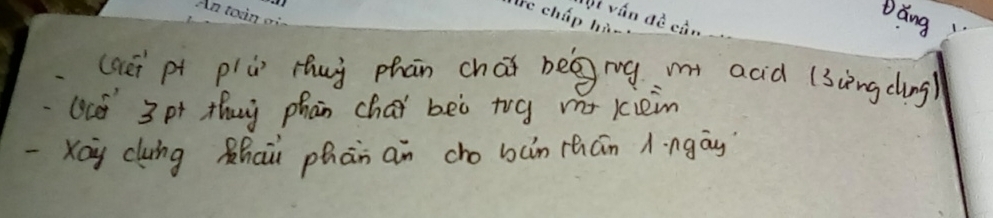 An toàn
vấn đề cần
Đăng
- Viết pt p/ứ thuỷ phân chất béo trg mt acid (3 ứng dụng)
- Viết 3 pt thuỷ phân chất béo trg mt kiềm
- Xây dựng khẩu phần ăn cho bản thân 1 ngày